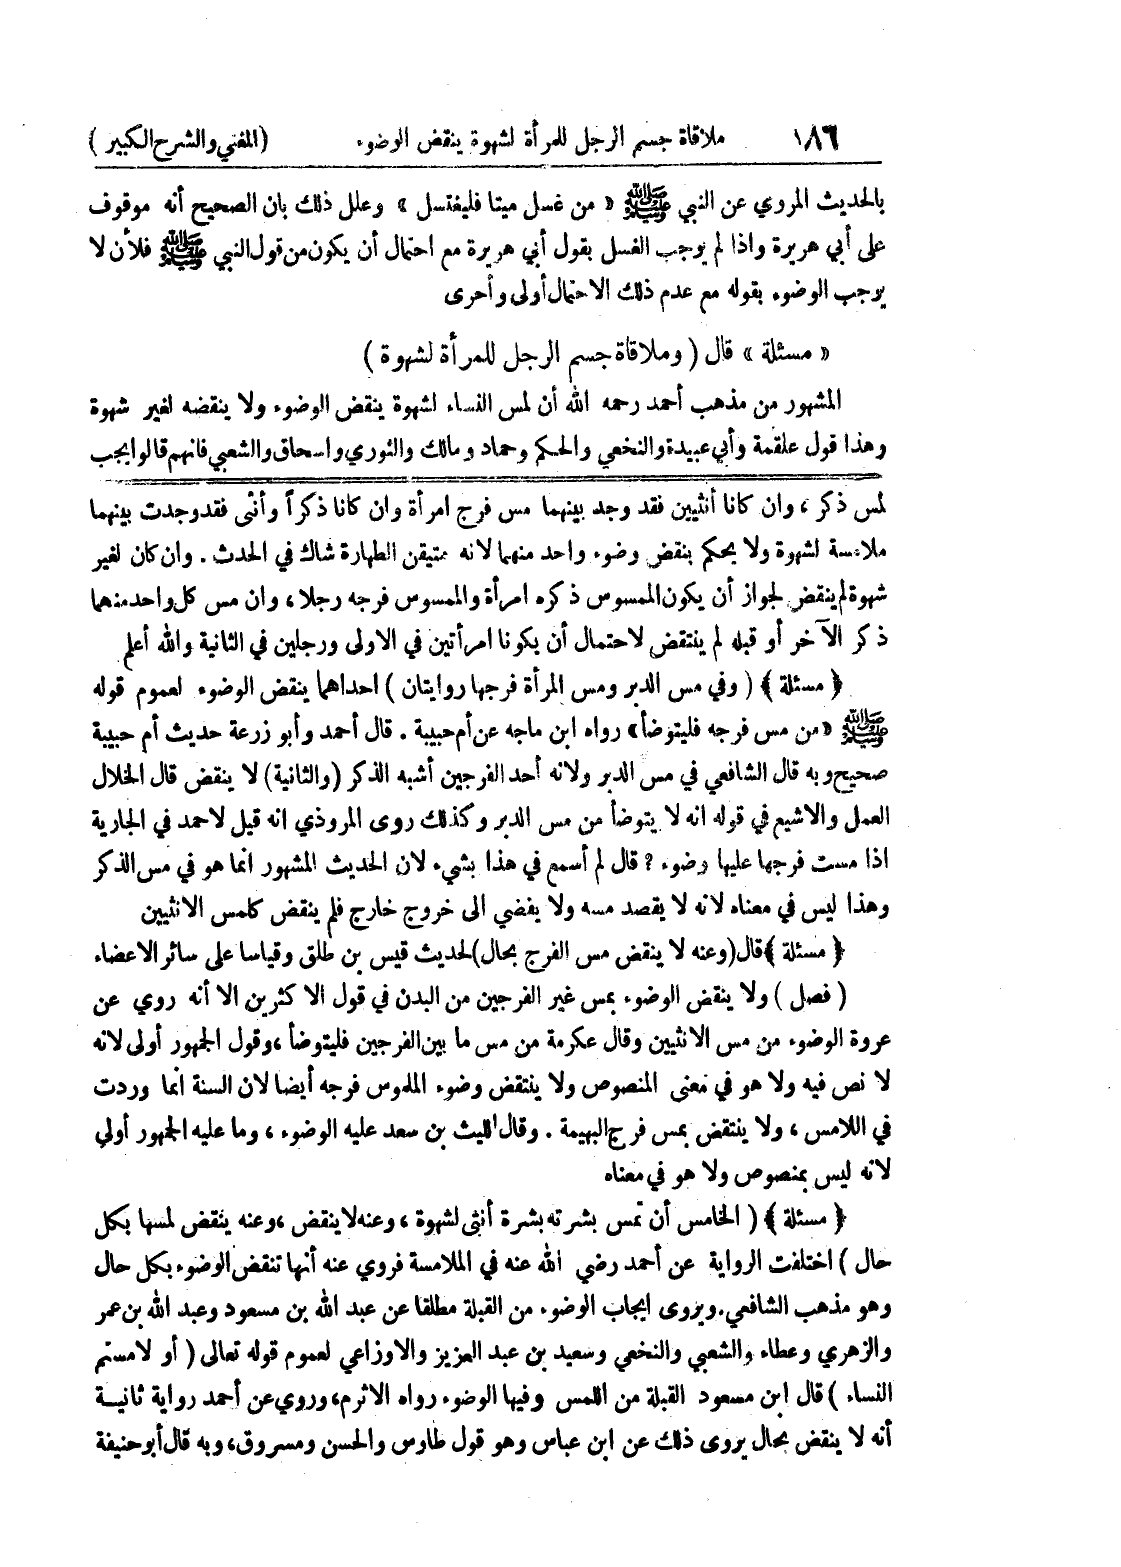 ١٨٦ ملاقاة جسم الرجل للمرأة لشهوة ينقض الوضوء (المغني والشرح الكبير)
بالحديث المروي عن النبي ﷺ « من غسل ميتا فليغتسل » وعلل ذلك بان الصحيح أنه موقوف
على أبي هريرة واذا لم يوجب الغسل بقول أبي هريرة مع احتمال أن يكون من قول النبي ﷺ فلأن لا
يوجب الوضوء بقوله مع عدم ذلك الاحتمال أولى وأحرى
« مسئلة » قال ( وملاقاة جسم الرجل للمرأة لشهوة )
المشهور من مذهب أحمد رحمه الله أن لمس النساء لشهوة ينقض الوضوء ولا ينقضه لغير شهوة
وهذا قول علقمة وأبي عبيدة والنخعي والحكم وحماد ومالك والثوري واسحاق والشعبي فانهم قالوا يجب
لمس ذكر ، وان كانا أنثيين فقد وجد بينهما مس فرج امرأة وان كانا ذكراً وأنثى فقد وجدت بينهما
ملامسة لشهوة ولا يحكم بنقض وضوء واحد منهما لانه متيقن الطهارة شاك في الحدث . وان كان لغير
شهوة لم ينقض لجواز أن يكون الممسوس ذكره امرأة والممسوس فرجه رجلا ، وان مس كل واحد منهما
ذكر الآخر أو قبله لم ينتقض لاحتمال أن يكونا امرأتين في الاولى ورجلين في الثانية والله أعلم
﴿ مسئلة ﴾ ( وفي مس الدبر ومس المرأة فرجها روايتان ) احداهما ينقض الوضوء لعموم قوله
ﷺ «من مس فرجه فليتوضأ» رواه ابن ماجه عن أم حبيبة . قال أحمد وأبو زرعة حديث أم حبيبة
صحيح وبه قال الشافعي في مس الدبر ولانه أحد الفرجين أشبه الذكر (والثانية) لا ينقض قال الخلال
العمل والاشيع في قوله انه لا يتوضأ من مس الدبر وكذلك روى المروذي انه قيل لاحمد في الجارية
اذا مست فرجها عليها وضوء ؟ قال لم أسمع في هذا بشيء لان الحديث المشهور انما هو في مس الذكر
وهذا ليس في معناه لانه لا يقصد مسه ولا يفضي الى خروج خارج فلم ينقض كلمس الانثيين
﴿ مسئلة ﴾ قال (وعنه لا ينقض مس الفرج بحال) لحديث قيس بن طلق وقياسا على سائر الاعضاء
( فصل ) ولا ينقض الوضوء بمس غير الفرجين من البدن في قول الاكثرين الا أنه روي عن
عروة الوضوء من مس الانثيين وقال عكرمة من مس ما بين الفرجين فليتوضأ ، وقول الجمهور أولى لانه
لا نص فيه ولا هو في معنى المنصوص ولا ينتقض وضوء الملموس فرجه أيضا لان السنة انما وردت
في اللامس ، ولا ينتقض بمس فرج البهيمة . وقال الليث بن سعد عليه الوضوء ، وما عليه الجمهور أولى
لانه ليس بمنصوص ولا هو في معناه
﴿ مسئلة ﴾ ( الخامس أن تمس بشرته بشرة أنثى لشهوة ، وعنه لا ينقض ، وعنه ينقض لمسها بكل
حال ) اختلفت الرواية عن أحمد رضي الله عنه في الملامسة فروي عنه أنها تنقض الوضوء بكل حال
وهو مذهب الشافعي . ويروى ايجاب الوضوء من القبلة مطلقا عن عبد الله بن مسعود وعبد الله بن عمر
والزهري وعطاء والشعبي والنخعي وسعيد بن عبد العزيز والاوزاعي لعموم قوله تعالى ( أو لامستم
النساء ) قال ابن مسعود القبلة من اللمس وفيها الوضوء رواه الاثرم ، وروي عن أحمد رواية ثانيــة
أنه لا ينقض بحال يروى ذلك عن ابن عباس وهو قول طاوس والحسن ومسروق ، وبه قال أبو حنيفة